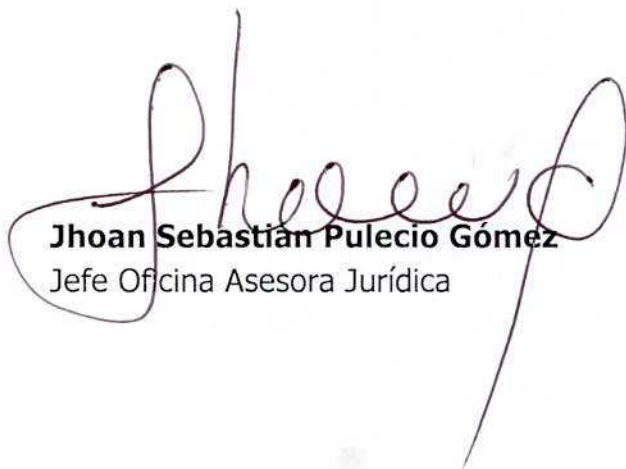 Jhoan Sebastián Pulecio Gómez
Jefe Oficina Asesora Jurídica